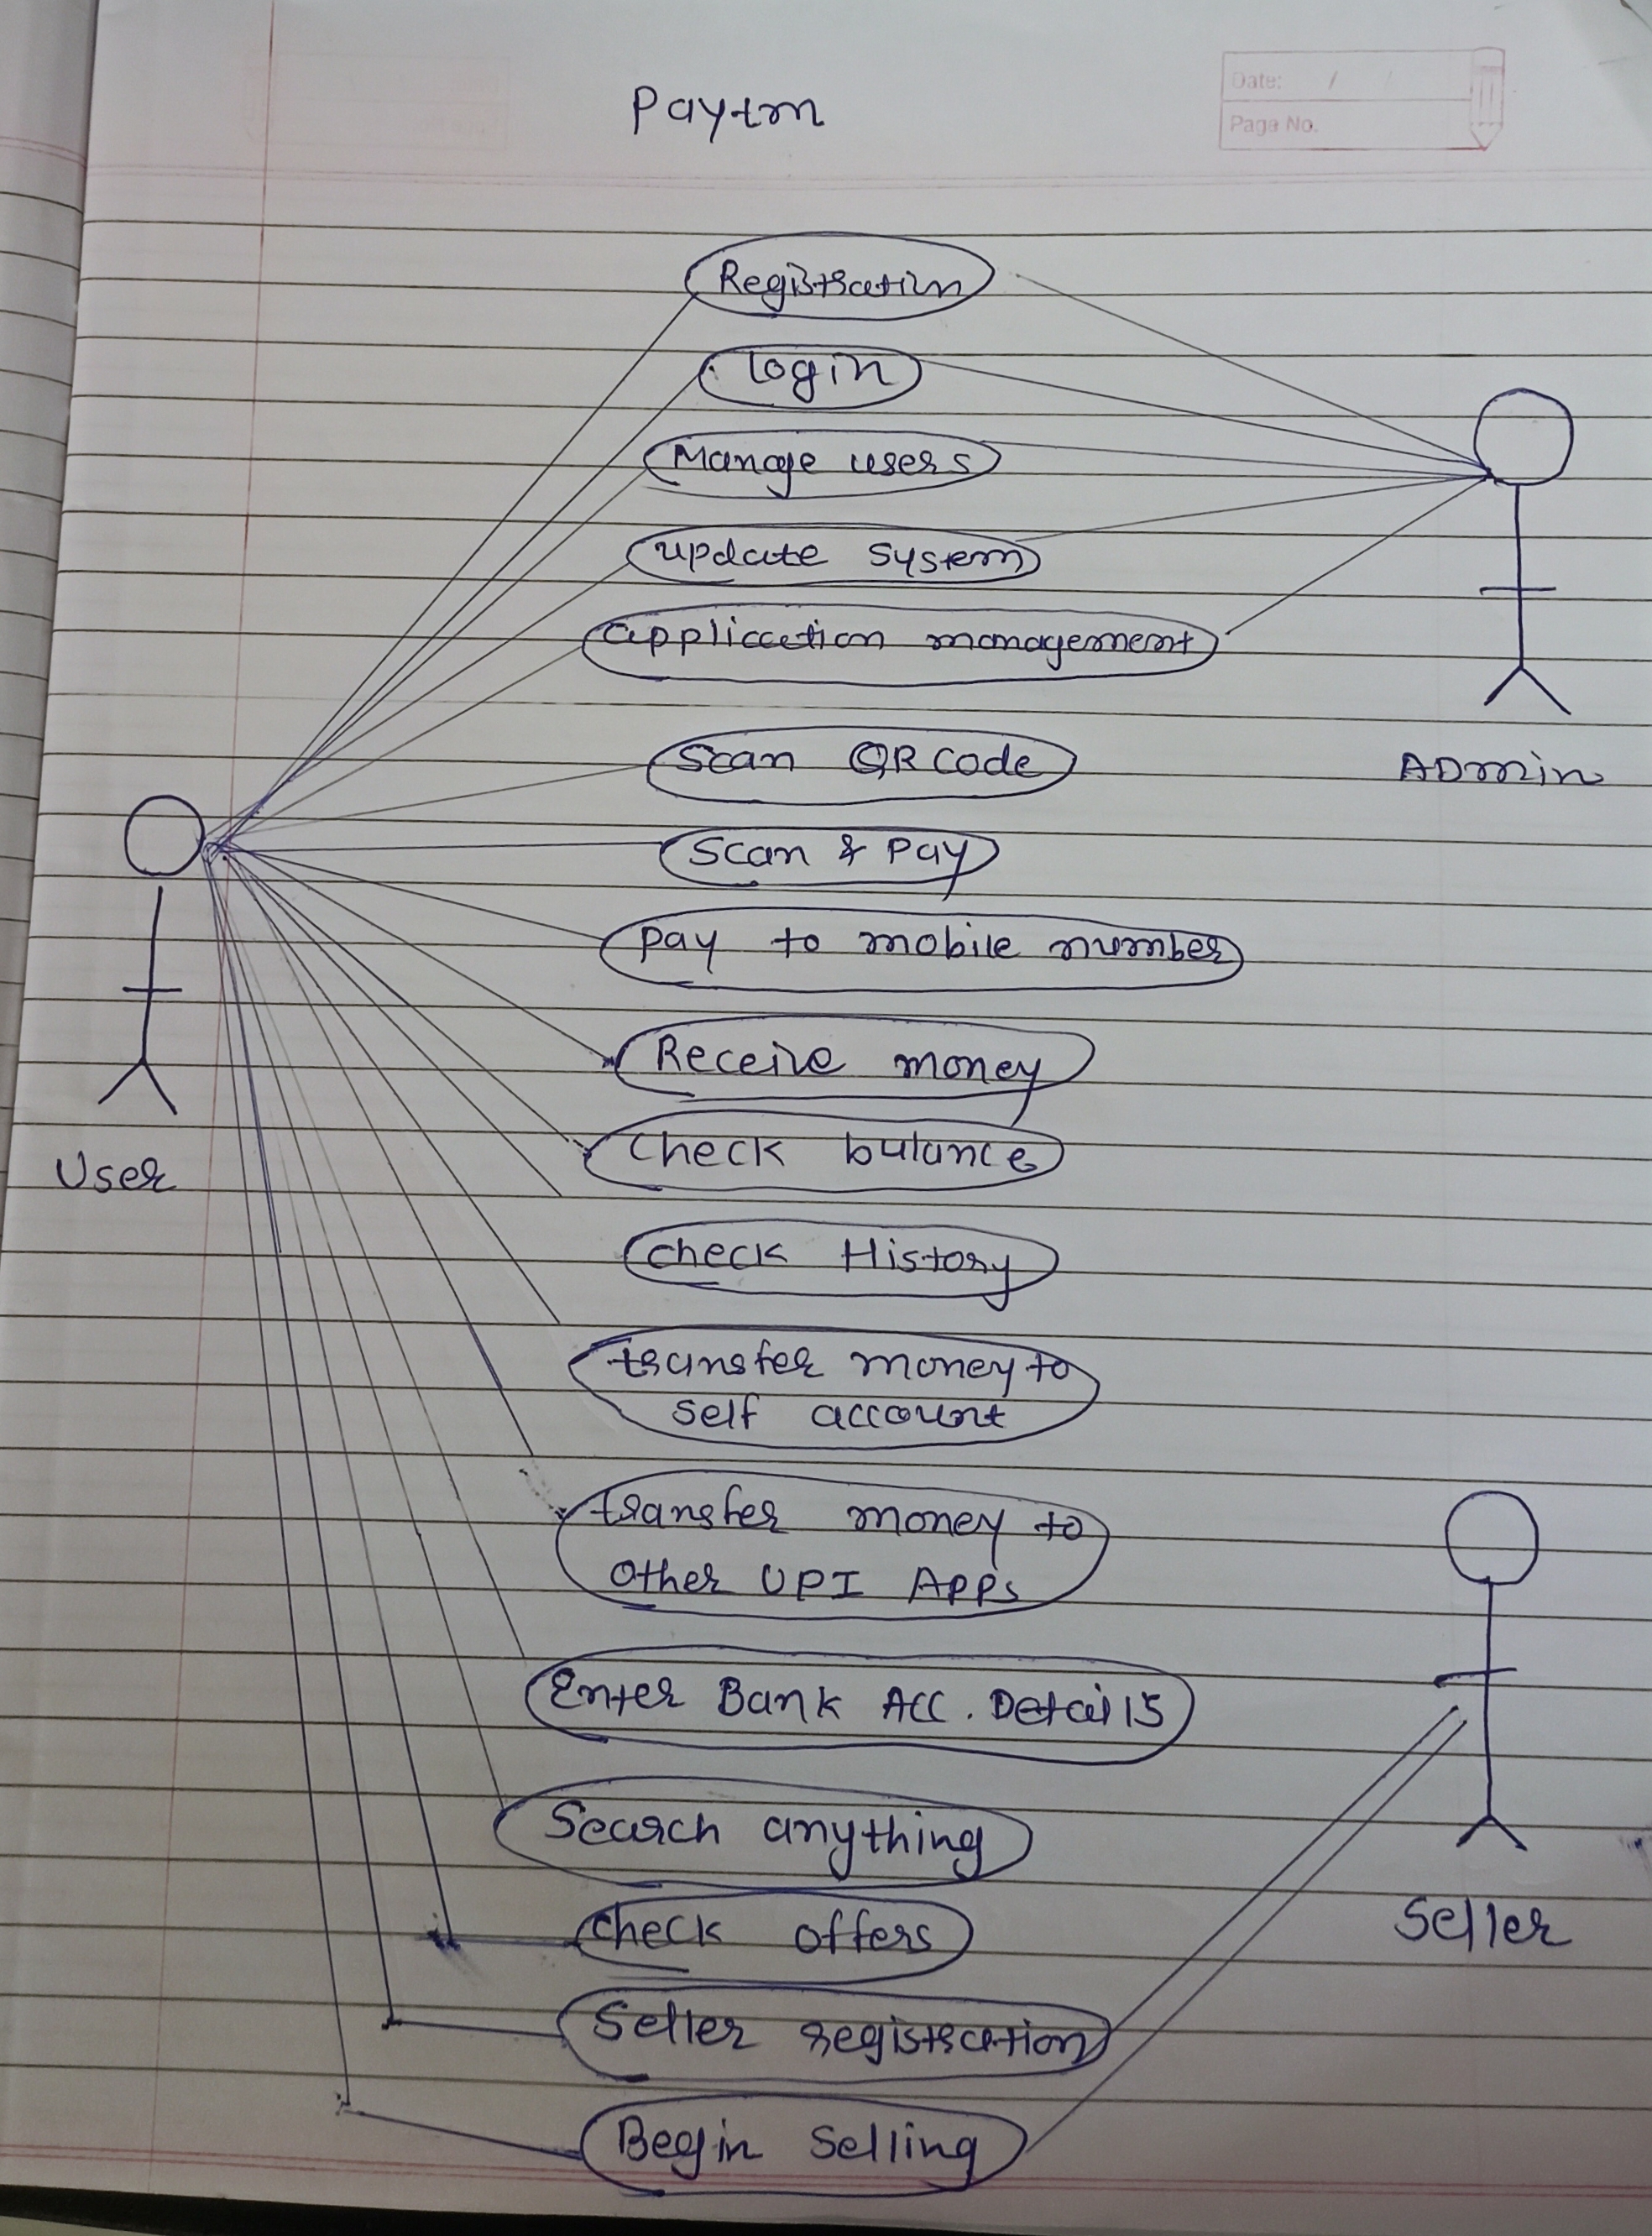 Paytm
Date: / /
Page No.
Registration
login
Manage users
update system
application management
Scan QR code
ADmin
Scan & Pay
pay to mobile number
Receive money
check balance
User
check History
transfer money to
self account
transfer money to
other UPI Apps
Enter Bank Acc. Details
Search anything
check offers
Seller
Seller registration
Begin Selling